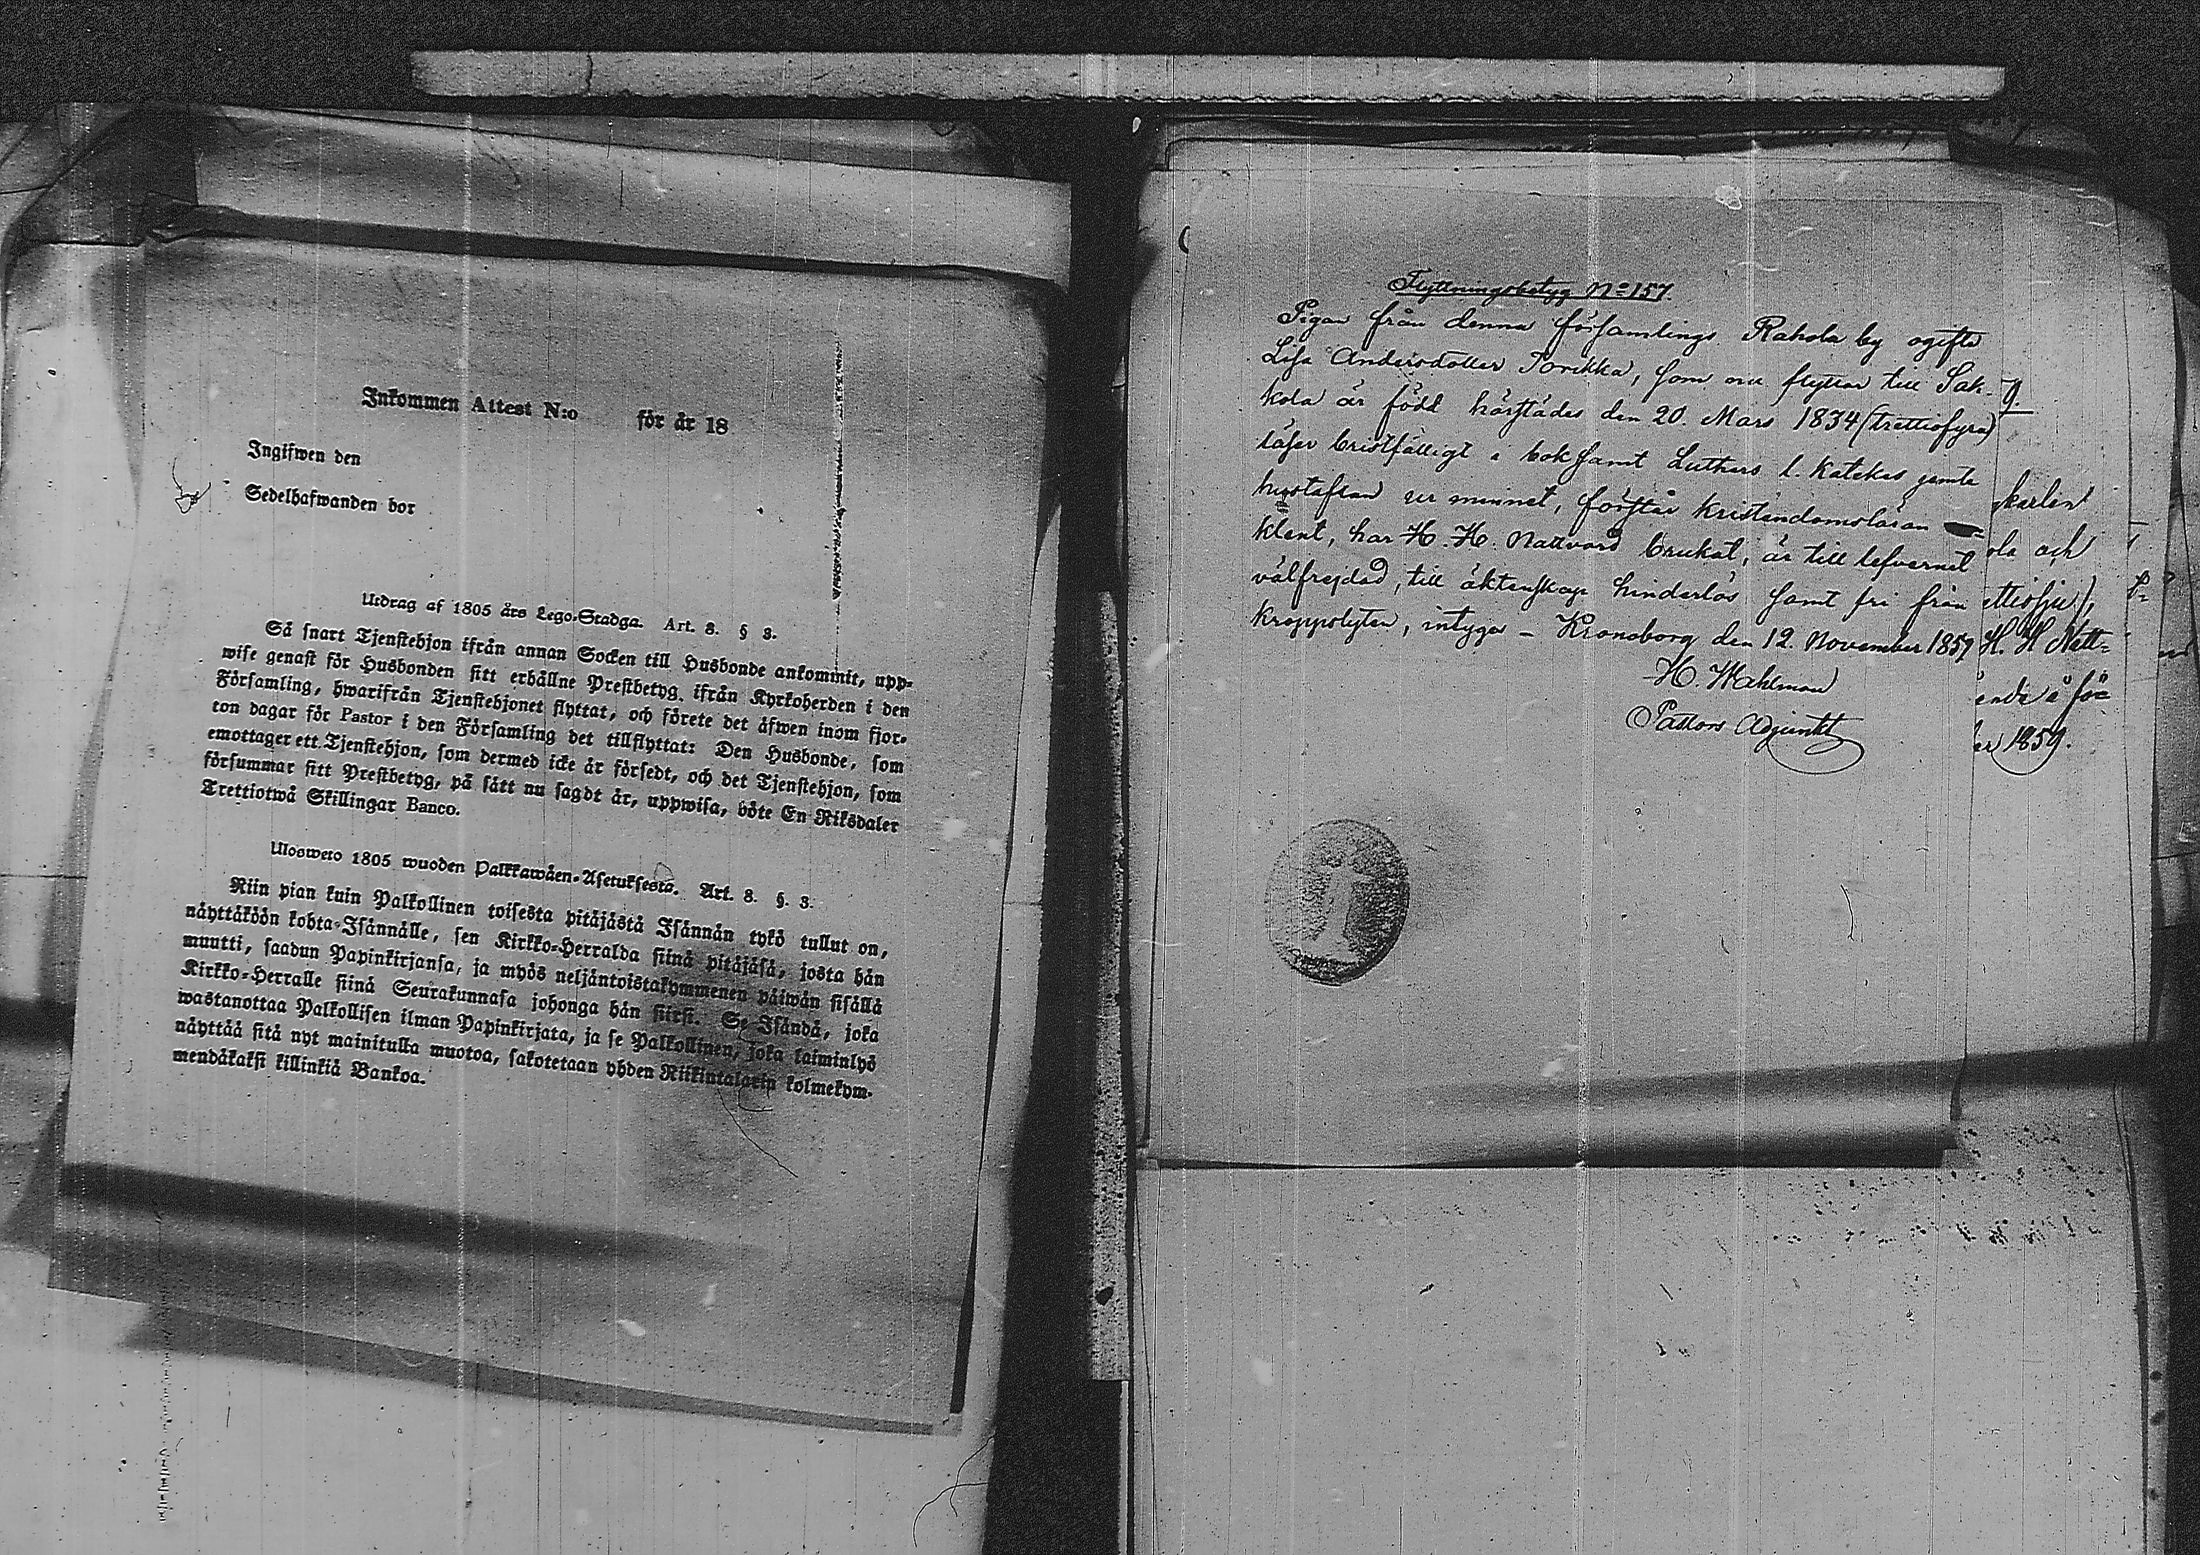 Inkommen Attest N:o för år 18
Ingifwen den
Sedelhafwanden bor
Utdrag af 1805 års Lego-Stadga. Art. 8. § 3.
Så snart Tjenstehjon ifrån annan Socken till Husbonde ankommit, upp-
wise genast för Husbonden sitt erhållne Prestbetyg, ifrån Kyrkoherden i den
Församling, hwarifrån Tjenstehjonet flyttat, och förete det äfwen inom fjor-
ton dagar för Pastor i den Församling det tillflyttat: Den Husbonde, som
emottager ett Tjenstehjon, som dermed icke är försedt, och det Tjenstehjon, som
försummar sitt Prestbetyg, på sätt nu sagdt är, uppwisa, böte En Riksdaler
Trettiotwå Skillingar Banco.
Ulosweto 1805 wuoden Palkkawäen-Asetuksesta. Art. 8. §. 3.
Niin pian kuin Palkollinen toisesta pitäjästä Isännän tykö tullut on,
näyttäköön kohta Isännälle, sen Kirkko-Herralda siinä pitäjäsä, josta hän
muutti, saadun Papinkirjansa, ja myös neljäntoistakymmenen päiwän sisällä
Kirkko-Herralle siinä Seurakunnasa johonga hän siirsi. Se Isändä, joka
wastanottaa Palkollisen ilman Papinkirjata, ja se Palkollinen, joka laiminlyö
näyttää sitä nyt mainitulla muotoa, sakotetaan yhden Riikintalarin kolmekym-
mendäkaksi killinkiä Bankoa.
Flyttningsbetyg No 157.
Pigan från denna församlings Rahola by ogifta
Lisa Andersdotter Torikka, som nu flyttar till Sak-
kola är född härstädes den 20. Mars 1834 (trettiofyra)
läser bristfälligt i bok samt Luthers l. Kateches jemte
hustaflan ur minnet, förstår kristendomsläran
klent, har H. H. Nattvard brukat, är till lefvernet
välfrejdad, till äktenskap hinderlös samt fri från
kroppslyten, intygar - Kronoborg den 12. November 1859
H. Wahlman
Pastors Adjunkt
karlen
ola och
ettiosju),
H. H Natt-
enda å för
er 1859.